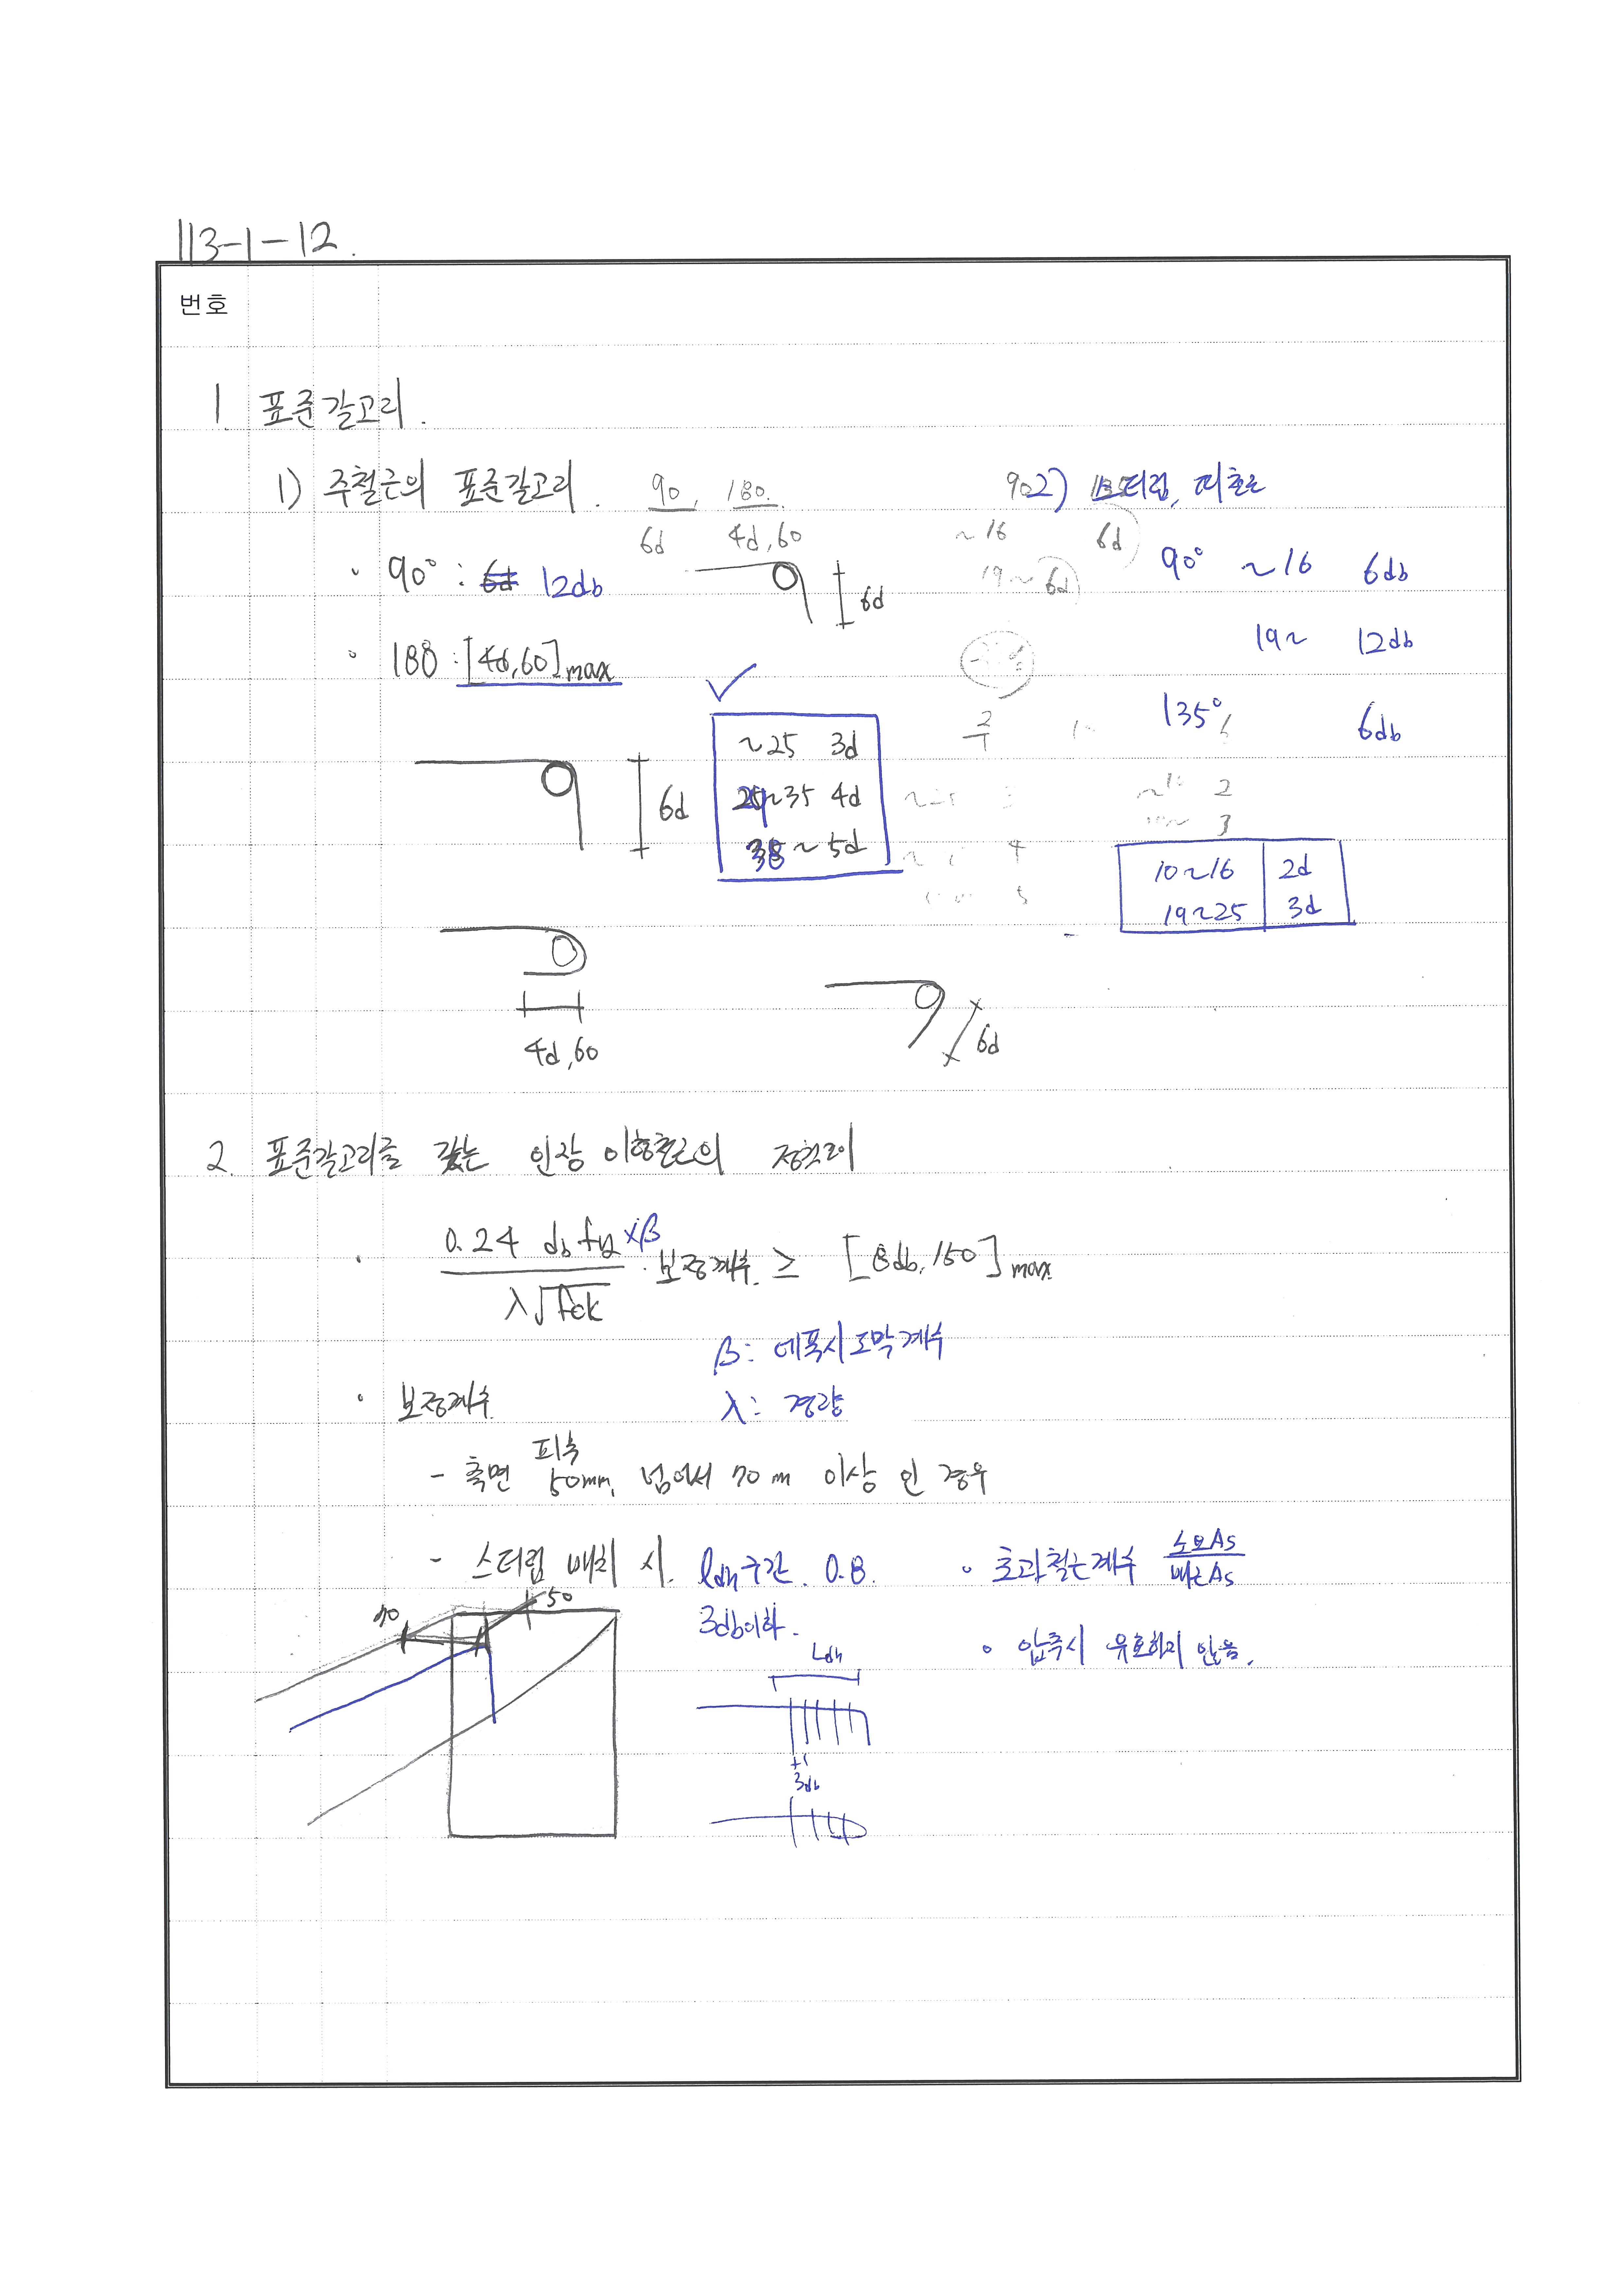 113-1-12.
번호
1. 표준갈고리.
1) 주철근의 표준갈고리. 90, 180.
6d 4d,60
90
2) 스터럽, 띠철근
~16 6d
19~ 6d
· 90° : 6d 12db
6d
90° ~16 6db
19~ 12db
135° 6db
· 180 : [4d,60]max
~25 3d
29~35 4d
38~ 5d
6d
10~16 2d
19~25 3d
4d,60
6d
2. 표준갈고리를 갖는 인장 이형철근의 정착길이
· 0.24 db fy ×β / λ√fck · 보정계수 ≥ [8db, 150]max
β: 에폭시도막계수
λ: 경량
· 보정계수
- 측면 피복 50mm, 넘어서 70m 이상 인 경우
- 스터럽 배치 시. ldh구간. 0.8.
3db이하.
· 초과철근계수 소요As / 배근As
· 압축시 유효하지 않음.
70
50
Ldh
3db